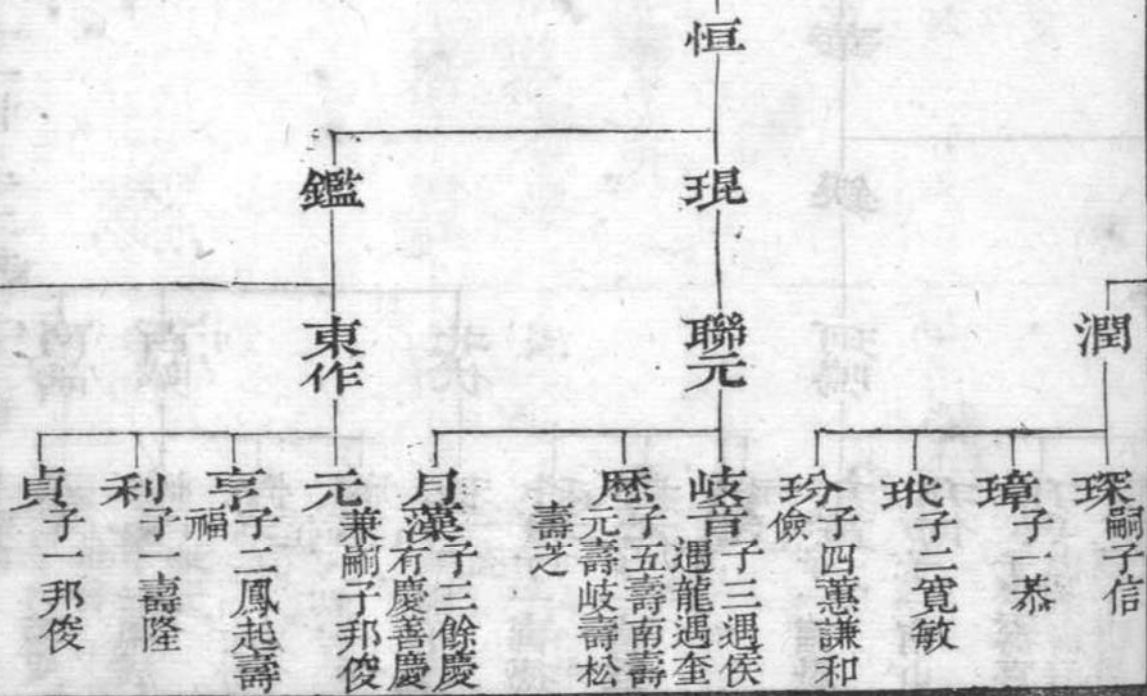 恒
琨
鑑
潤
聯元
東作
琛
嗣子信
璋
子一恭
玳
子二寬敏
玢
子四蕙謙和
儉
岐音
子三遇侯
遇龍遇奎
歷
子五壽南壽
元壽岐壽松
壽芝
月漢
子三餘慶
有慶善慶
元
兼嗣子邦俊
亨
子二鳳起壽
福
利
子一壽隆
貞
子一邦俊